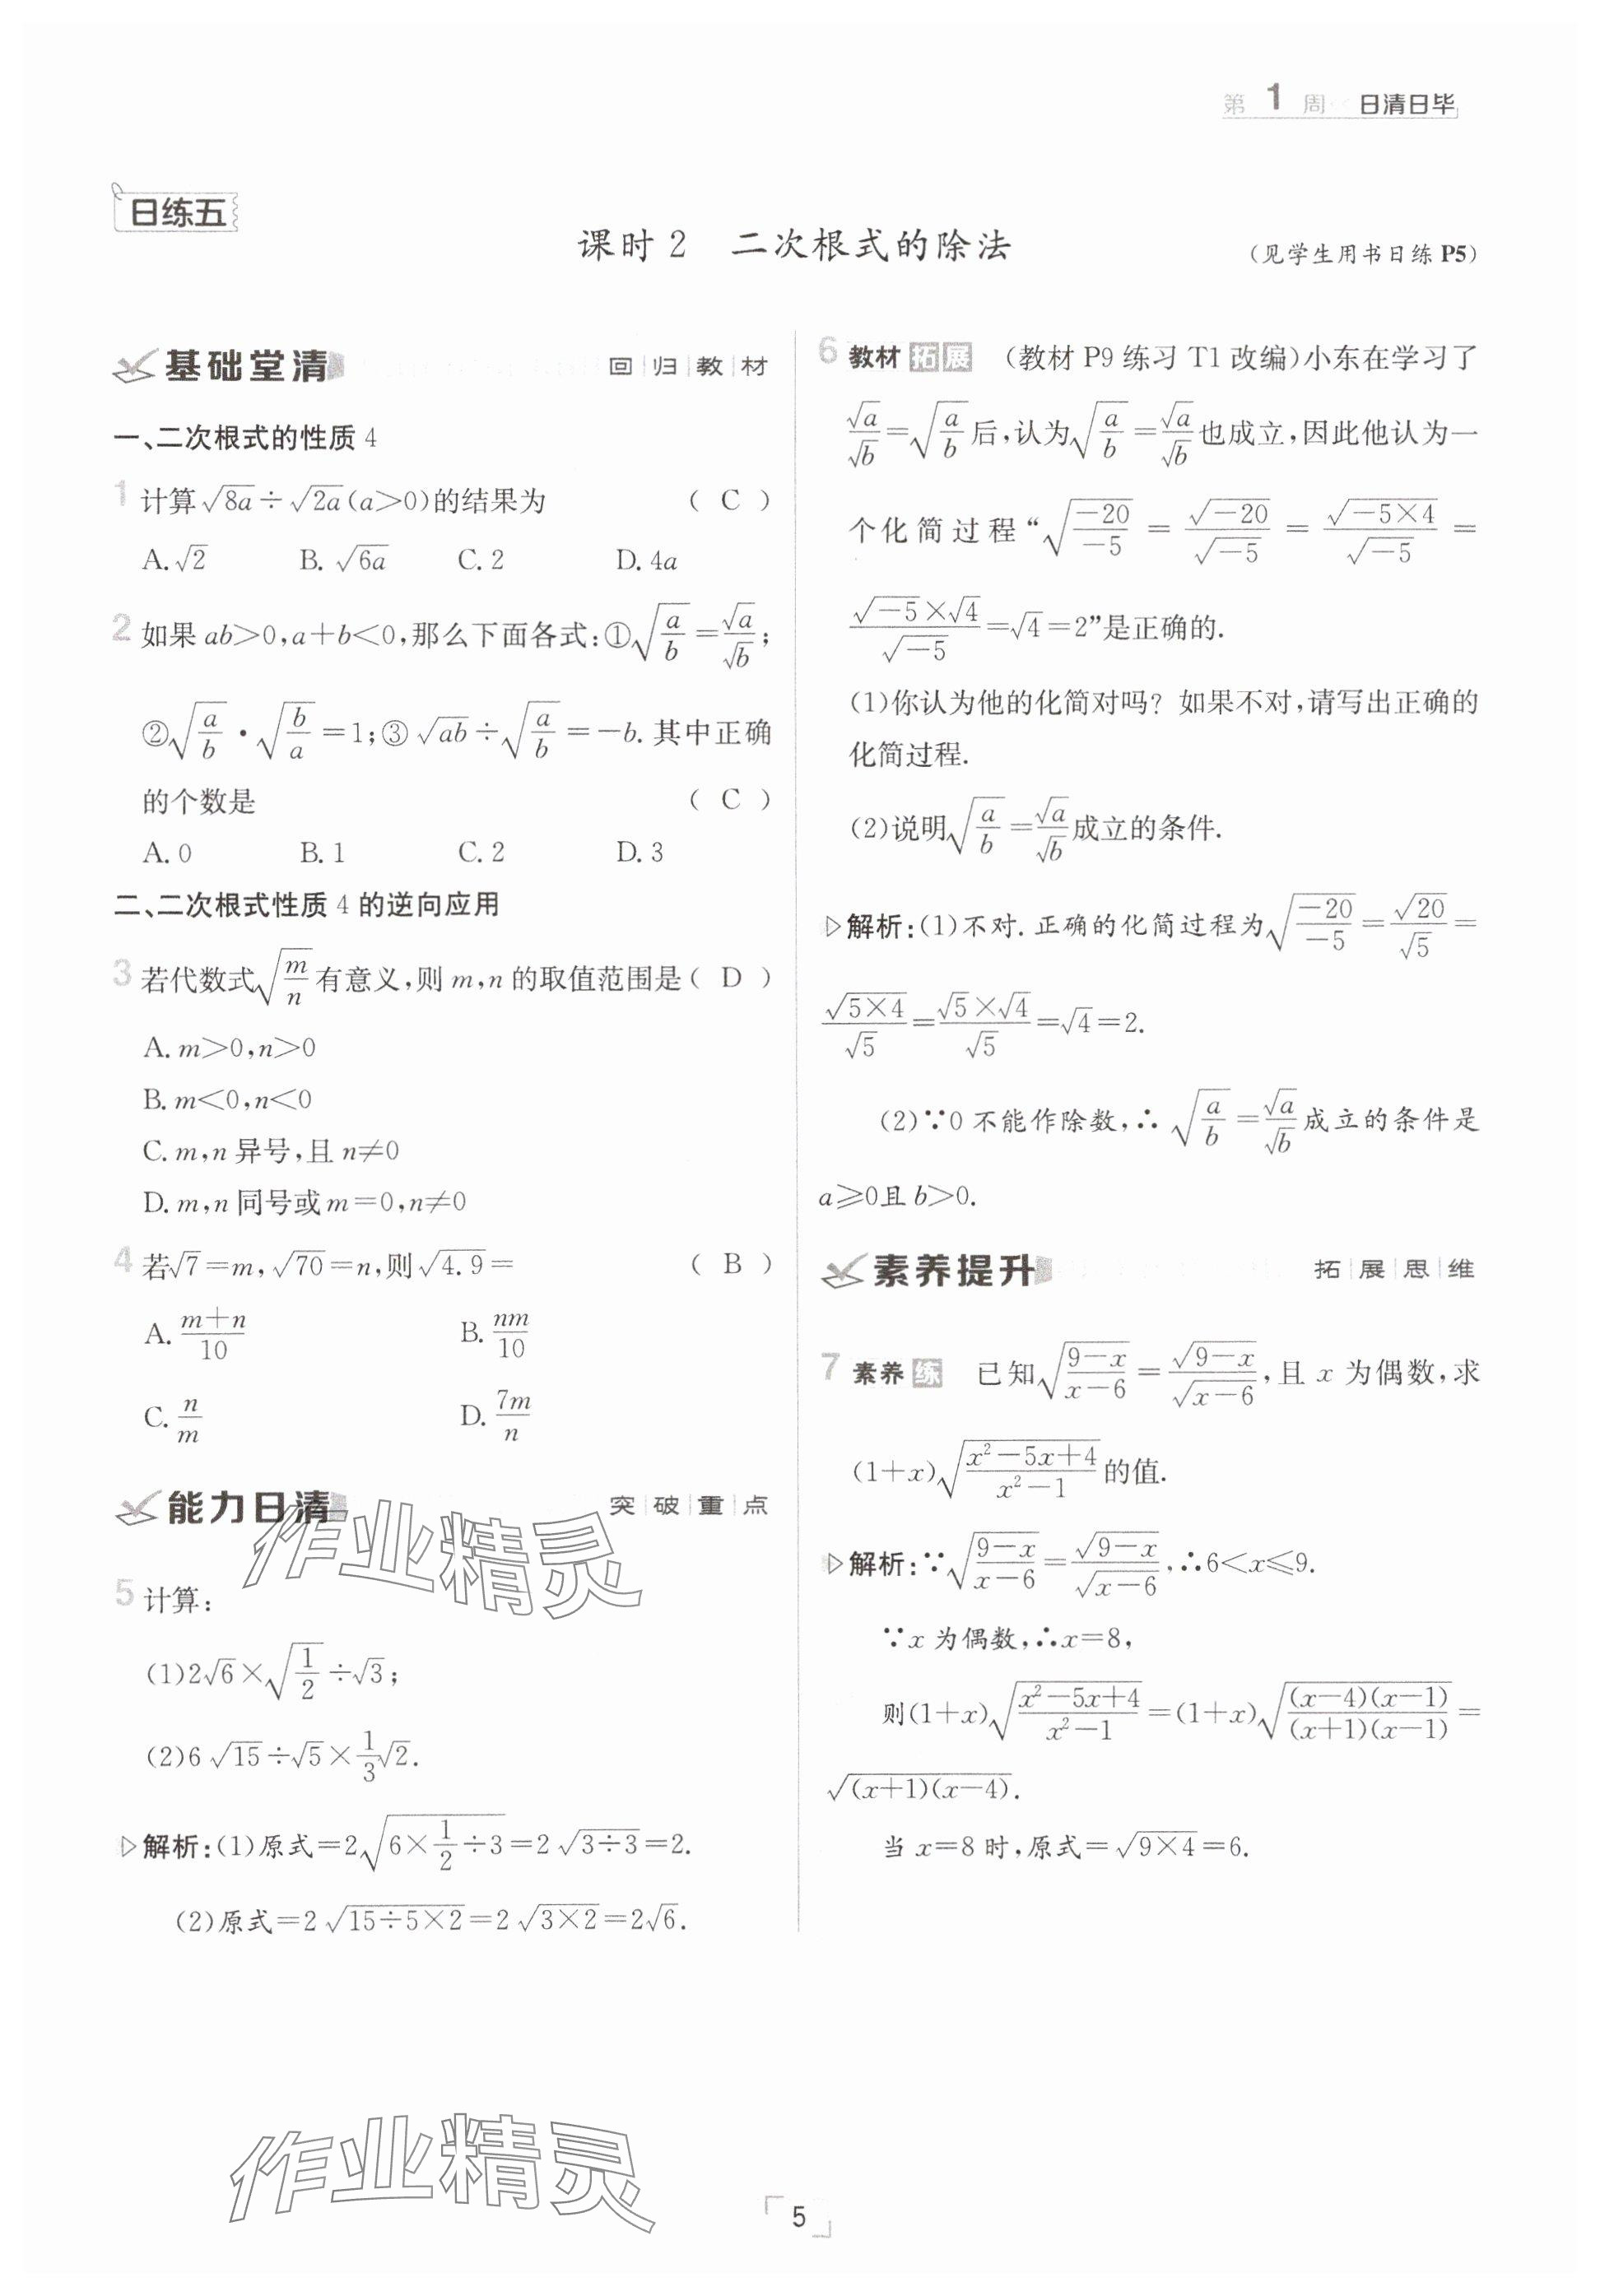 第 1 周 日清日毕
日练五
课时 2 二次根式的除法
(见学生用书日练 P5)
基础堂清 回归教材
一、二次根式的性质 4
1 计算√(8a)÷√(2a)(a>0)的结果为 ( C )
A.√2 B.√(6a) C.2 D.4a
2 如果 ab>0,a+b<0,那么下面各式:①√(a/b)=√a/√b;
②√(a/b)·√(b/a)=1;③√(ab)÷√(a/b)=-b.其中正确
的个数是 ( C )
A.0 B.1 C.2 D.3
二、二次根式性质 4 的逆向应用
3 若代数式√(m/n)有意义,则 m,n 的取值范围是( D )
A.m>0,n>0
B.m<0,n<0
C.m,n 异号,且 n≠0
D.m,n 同号或 m=0,n≠0
4 若√7=m,√70=n,则√4.9= ( B )
A.(m+n)/10 B.nm/10
C.n/m D.7m/n
能力日清 突破重点
5 计算:
(1)2√6×√(1/2)÷√3;
(2)6√15÷√5×(1/3)√2.
▷解析:(1)原式=2√(6×1/2÷3)=2√(3÷3)=2.
(2)原式=2√(15÷5×2)=2√(3×2)=2√6.
6 教材拓展 (教材 P9 练习 T1 改编)小东在学习了
√a/√b=√(a/b)后,认为√(a/b)=√a/√b也成立,因此他认为一
个化简过程“√(-20/-5)=√(-20)/√(-5)=√(-5×4)/√(-5)=
(√(-5)×√4)/√(-5)=√4=2”是正确的.
(1)你认为他的化简对吗?如果不对,请写出正确的
化简过程.
(2)说明√(a/b)=√a/√b成立的条件.
▷解析:(1)不对.正确的化简过程为√(-20/-5)=√20/√5=
√(5×4)/√5=(√5×√4)/√5=√4=2.
(2)∵0 不能作除数,∴√(a/b)=√a/√b成立的条件是
a≥0且 b>0.
素养提升 拓展思维
7 素养练 已知√((9-x)/(x-6))=√(9-x)/√(x-6),且 x 为偶数,求
(1+x)√((x²-5x+4)/(x²-1))的值.
▷解析:∵√((9-x)/(x-6))=√(9-x)/√(x-6),∴6<x≤9.
∵x 为偶数,∴x=8,
则(1+x)√((x²-5x+4)/(x²-1))=(1+x)√((x-4)(x-1)/(x+1)(x-1))=
√((x+1)(x-4)).
当 x=8 时,原式=√(9×4)=6.
作业精灵
作业精灵
5